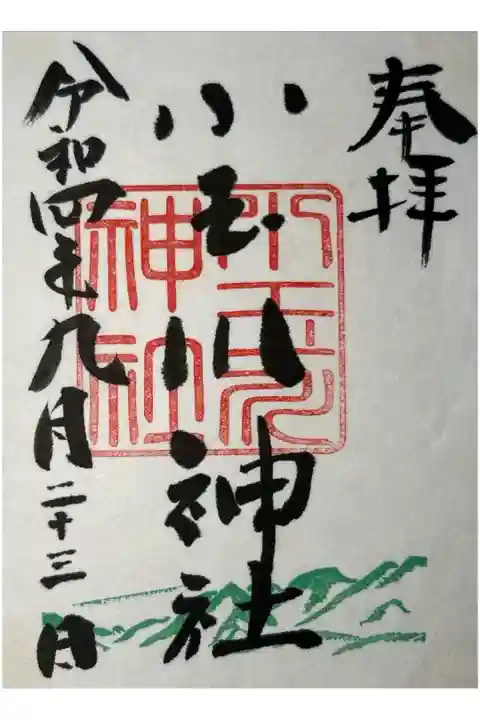 奉拝
小玉川神社
令和四年九月二十三日